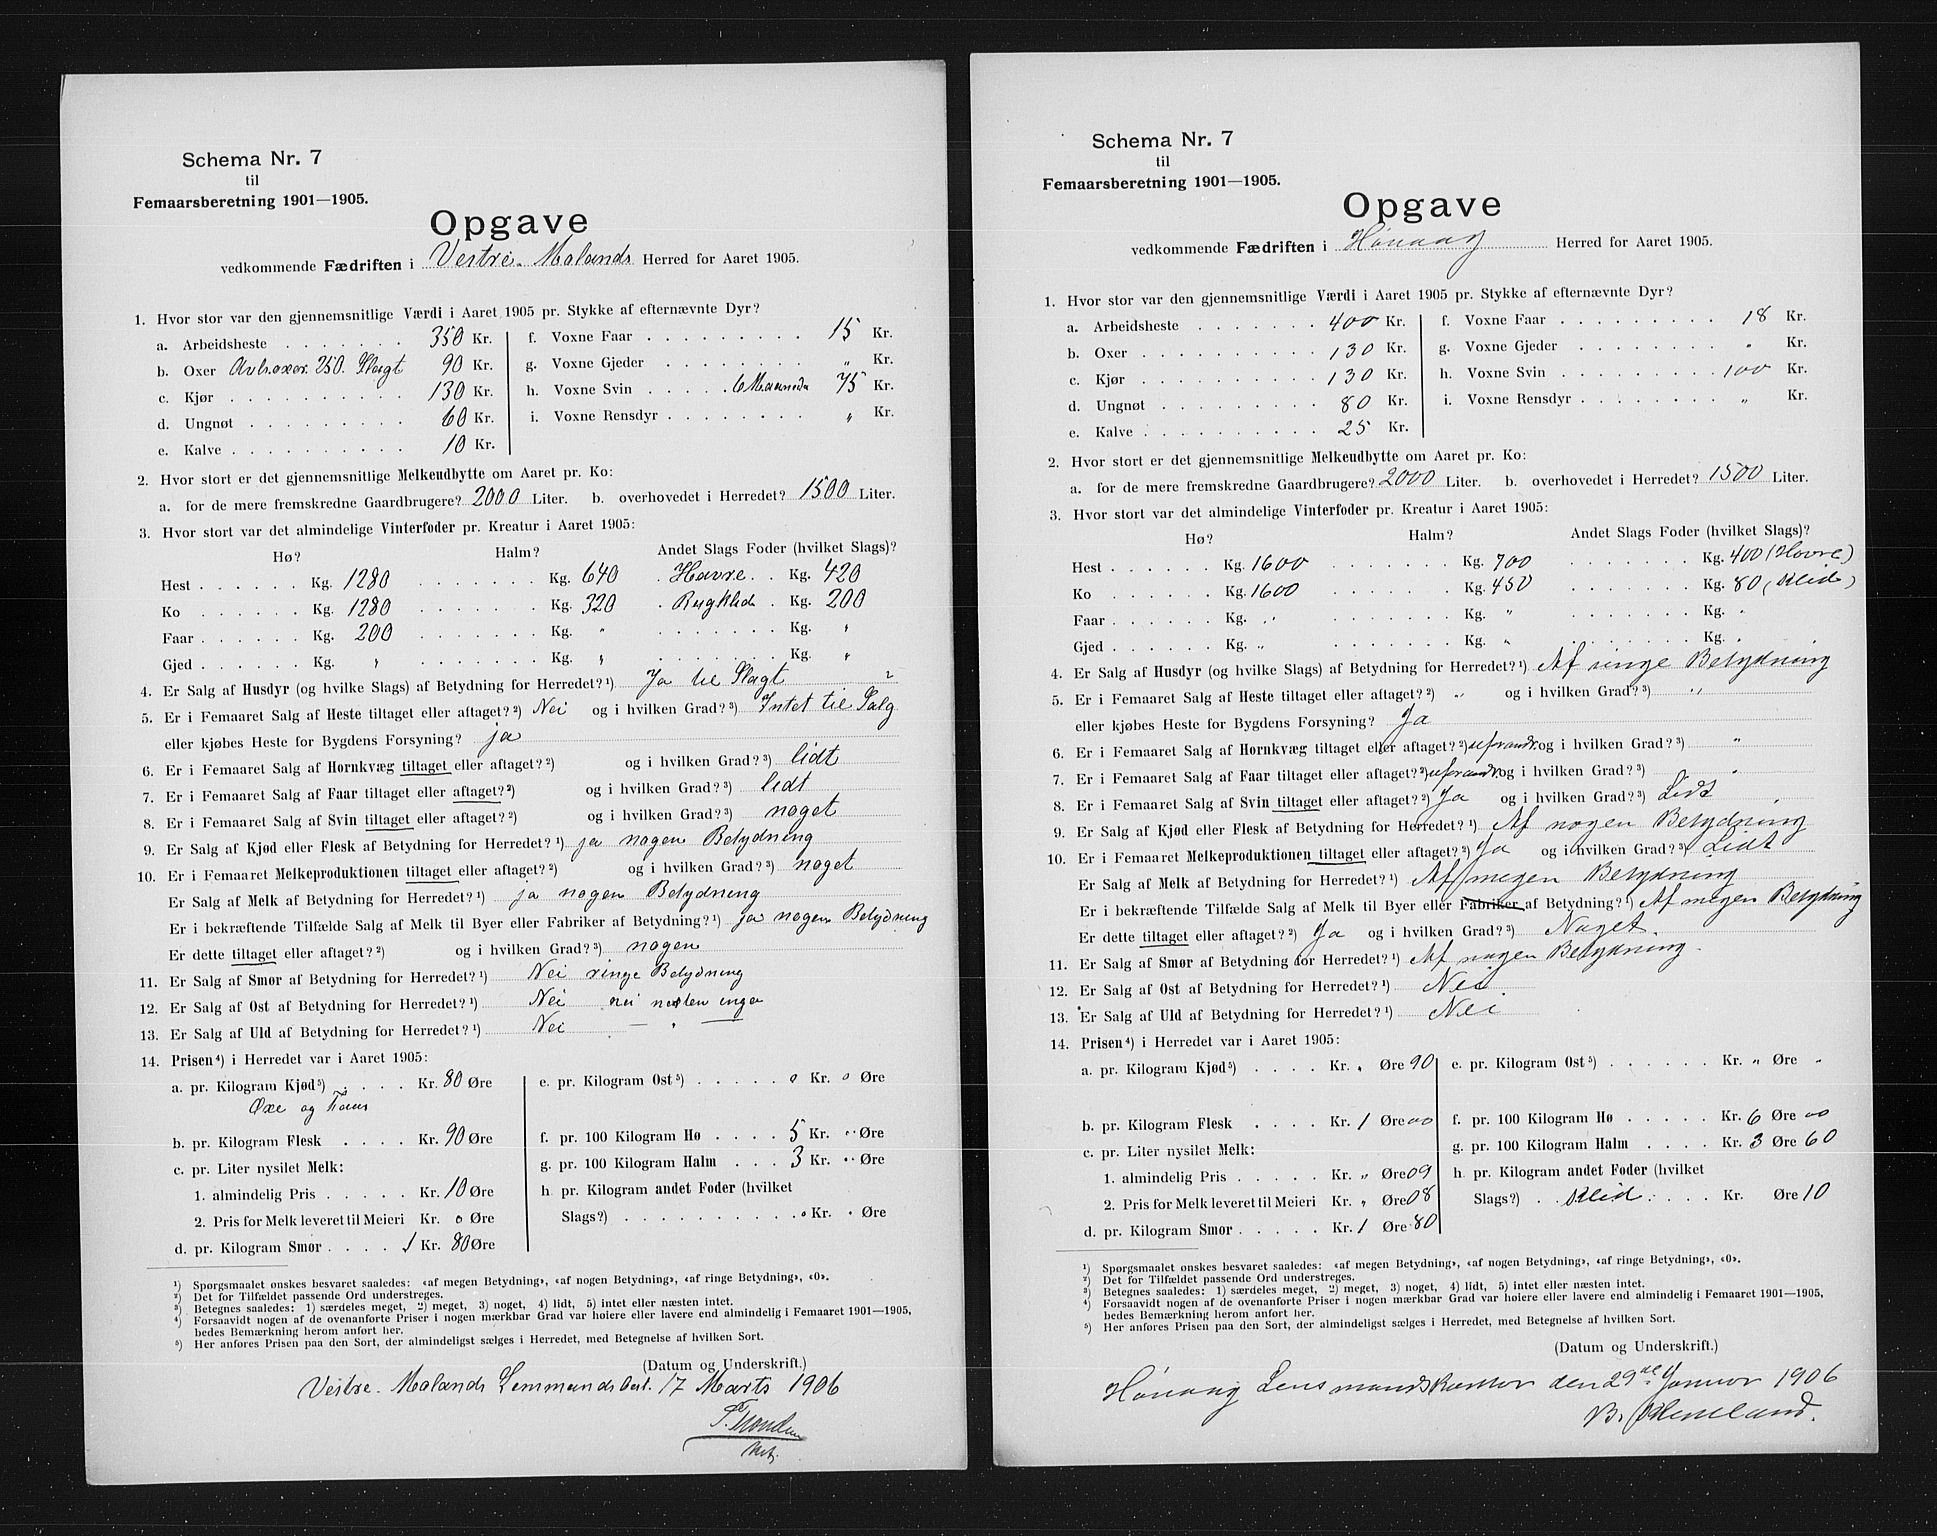 Schema Nr. 7
til
Femaarsberetning 1901—1905.
Opgave
vedkommende Fædriften i Vestre Molands Herred for Aaret 1905.
1. Hvor stor var den gjennemsnitlige Værdi i Aaret 1905 pr. Stykke af efternævnte Dyr?
a. Arbeidsheste 350 Kr.
b. Oxer Avlsoxer 250. Slagt 90 Kr.
c. Kjør 130 Kr.
d. Ungnøt 60 Kr.
e. Kalve 10 Kr.
f. Voxne Faar 15 Kr.
g. Voxne Gjeder „ Kr.
h. Voxne Svin 6 Maaneder 75 Kr.
i. Voxne Rensdyr „ Kr.
2. Hvor stort er det gjennemsnitlige Melkeudbytte om Aaret pr. Ko:
a. for de mere fremskredne Gaardbrugere? 2000 Liter. b. overhovedet i Herredet? 1500 Liter.
3. Hvor stort var det almindelige Vinterfoder pr. Kreatur i Aaret 1905:
Hø? Halm? Andet Slags Foder (hvilket Slags)?
Hest Kg. 1280 Kg. 640 Havre Kg. 420
Ko Kg. 1280 Kg. 320 Rugklid Kg. 200
Faar Kg. 200 Kg. „ Kg. „
Gjed Kg. „ Kg. „ Kg. „
4. Er Salg af Husdyr (og hvilke Slags) af Betydning for Herredet?¹) Ja til Slagt
5. Er i Femaaret Salg af Heste tiltaget eller aftaget?²) Nei og i hvilken Grad?³) Intet til Salg
eller kjøbes Heste for Bygdens Forsyning? ja
6. Er i Femaaret Salg af Hornkvæg tiltaget eller aftaget?²) og i hvilken Grad?³) lidt
7. Er i Femaaret Salg af Faar tiltaget eller aftaget?²) og i hvilken Grad?³) lidt
8. Er i Femaaret Salg af Svin tiltaget eller aftaget?²) og i hvilken Grad?³) noget
9. Er Salg af Kjød eller Flesk af Betydning for Herredet?¹) ja nogen Betydning
10. Er i Femaaret Melkeproduktionen tiltaget eller aftaget?²) og i hvilken Grad?³) noget
Er Salg af Melk af Betydning for Herredet?¹) ja nogen Betydning
Er i bekræftende Tilfælde Salg af Melk til Byer eller Fabriker af Betydning?¹) ja nogen Betydning
Er dette tiltaget eller aftaget?²) og i hvilken Grad?³) nogen
11. Er Salg af Smør af Betydning for Herredet?¹) Nei ringe Betydning
12. Er Salg af Ost af Betydning for Herredet?¹) Nei nei næsten ingen
13. Er Salg af Uld af Betydning for Herredet?¹) Nei — „ —
14. Prisen⁴) i Herredet var i Aaret 1905:
a. pr. Kilogram Kjød⁵) Kr. 80 Øre
Oxe og Faar
b. pr. Kilogram Flesk Kr. 90 Øre
c. pr. Liter nysilet Melk:
1. almindelig Pris Kr. 10 Øre
2. Pris for Melk leveret til Meieri Kr. 0 Øre
d. pr. Kilogram Smør 1 Kr. 80 Øre
e. pr. Kilogram Ost⁵) 0 Kr. 0 Øre
f. pr. 100 Kilogram Hø 5 Kr. „ Øre
g. pr. 100 Kilogram Halm 3 Kr. „ Øre
h. pr. Kilogram andet Foder (hvilket
Slags?) Kr. Øre
¹) Spørgsmaalet ønskes besvaret saaledes: «af megen Betydning», «af nogen Betydning», «af ringe Betydning», «0».
²) Det for Tilfældet passende Ord understreges.
³) Betegnes saaledes: 1) særdeles meget, 2) meget, 3) noget, 4) lidt, 5) intet eller næsten intet.
⁴) Forsaavidt nogen af de ovenanførte Priser i nogen mærkbar Grad var høiere eller lavere end almindelig i Femaaret 1901—1905,
bedes Bemærkning herom anført her.
⁵) Her anføres Prisen paa den Sort, der almindeligst sælges i Herredet, med Betegnelse af hvilken Sort.
(Datum og Underskrift.)
Vestre Molands Lensmandsbest. 17 Marts 1906

Schema Nr. 7
til
Femaarsberetning 1901—1905.
Opgave
vedkommende Fædriften i Høvaag Herred for Aaret 1905.
1. Hvor stor var den gjennemsnitlige Værdi i Aaret 1905 pr. Stykke af efternævnte Dyr?
a. Arbeidsheste 400 Kr.
b. Oxer 130 Kr.
c. Kjør 130 Kr.
d. Ungnøt 80 Kr.
e. Kalve 25 Kr.
f. Voxne Faar 18 Kr.
g. Voxne Gjeder „ Kr.
h. Voxne Svin 100 Kr.
i. Voxne Rensdyr „ Kr.
2. Hvor stort er det gjennemsnitlige Melkeudbytte om Aaret pr. Ko:
a. for de mere fremskredne Gaardbrugere? 2000 Liter. b. overhovedet i Herredet? 1500 Liter.
3. Hvor stort var det almindelige Vinterfoder pr. Kreatur i Aaret 1905:
Hø? Halm? Andet Slags Foder (hvilket Slags)?
Hest Kg. 1600 Kg. 700 Kg. 400 (Havre)
Ko Kg. 1600 Kg. 450 Kg. 80 (Klid)
Faar Kg. „ Kg. „ Kg. „
Gjed Kg. „ Kg. „ Kg. „
4. Er Salg af Husdyr (og hvilke Slags) af Betydning for Herredet?¹) Af ringe Betydning
5. Er i Femaaret Salg af Heste tiltaget eller aftaget?²) „ og i hvilken Grad?³) „
eller kjøbes Heste for Bygdens Forsyning? Ja
6. Er i Femaaret Salg af Hornkvæg tiltaget eller aftaget?²) uforandr. og i hvilken Grad?³) „
7. Er i Femaaret Salg af Faar tiltaget eller aftaget?²) uforandr. og i hvilken Grad?³) „
8. Er i Femaaret Salg af Svin tiltaget eller aftaget?²) Ja og i hvilken Grad?³) Lidt
9. Er Salg af Kjød eller Flesk af Betydning for Herredet?¹) Af nogen Betydning
10. Er i Femaaret Melkeproduktionen tiltaget eller aftaget?²) Ja og i hvilken Grad?³) Lidt
Er Salg af Melk af Betydning for Herredet?¹) Af megen Betydning
Er i bekræftende Tilfælde Salg af Melk til Byer eller Fabriker af Betydning?¹) Af megen Betydning
Er dette tiltaget eller aftaget?²) Ja og i hvilken Grad?³) Noget.
11. Er Salg af Smør af Betydning for Herredet?¹) Af nogen Betydning.
12. Er Salg af Ost af Betydning for Herredet?¹) Nei.
13. Er Salg af Uld af Betydning for Herredet?¹) Nei
14. Prisen⁴) i Herredet var i Aaret 1905:
a. pr. Kilogram Kjød⁵) Kr. „ Øre 90
b. pr. Kilogram Flesk Kr. 1 Øre 00
c. pr. Liter nysilet Melk:
1. almindelig Pris Kr. „ Øre 09
2. Pris for Melk leveret til Meieri Kr. „ Øre 08
d. pr. Kilogram Smør Kr. 1 Øre 80
e. pr. Kilogram Ost⁵) Kr. „ Øre „
f. pr. 100 Kilogram Hø Kr. 6 Øre 00
g. pr. 100 Kilogram Halm Kr. 3 Øre 60
h. pr. Kilogram andet Foder (hvilket
Slags?) Klid Kr. Øre 10
¹) Spørgsmaalet ønskes besvaret saaledes: «af megen Betydning», «af nogen Betydning», «af ringe Betydning», «0».
²) Det for Tilfældet passende Ord understreges.
³) Betegnes saaledes: 1) særdeles meget, 2) meget, 3) noget, 4) lidt, 5) intet eller næsten intet.
⁴) Forsaavidt nogen af de ovenanførte Priser i nogen mærkbar Grad var høiere eller lavere end almindelig i Femaaret 1901—1905,
bedes Bemærkning herom anført her.
⁵) Her anføres Prisen paa den Sort, der almindeligst sælges i Herredet, med Betegnelse af hvilken Sort.
(Datum og Underskrift.)
Høvaag Lensmandskontor den 29de Januar 1906
B.